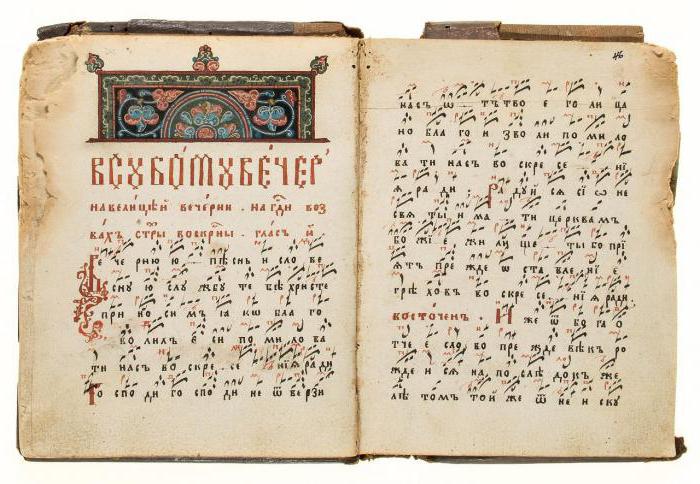 В СУБО́ТУ ВЕ́ЧЕР
на велицѣй вечерни . на гд҇и воз
вах̾ъ стр҇ы воскр҇ны . гласъ и҃ .
Ве че рнюю пѣ снь и сло ве
сну ю слу жбу те бѣ христе
при но си мъ ꙗ кѡ бла го
во лилъ е си по ми ло ва
ти насъ во скре се нїꙗ ради
Го спо ди го спо ди не ѿ ве рзи
46
насъ ѿ тъ тво е го ли ца
но бла го и зво ли по ми ло
ва ти насъ во скре се нї
ꙗ ра ди . Ра ду й сѧ сї ѡ не
свѧ ты и ма ти церквамъ
бо жї е жи ли ще ты бо прї
ꙗтъ пре жде ѡ ста вле нї е
грѣ ховъ во скре се нї ꙗ ради
восточенъ . И же ѿ бо га о
тче е сло во пре жде вѣкъ ро
жде и сѧ на по слѣ докъ же
лѣ томъ той же ѿ не и ску